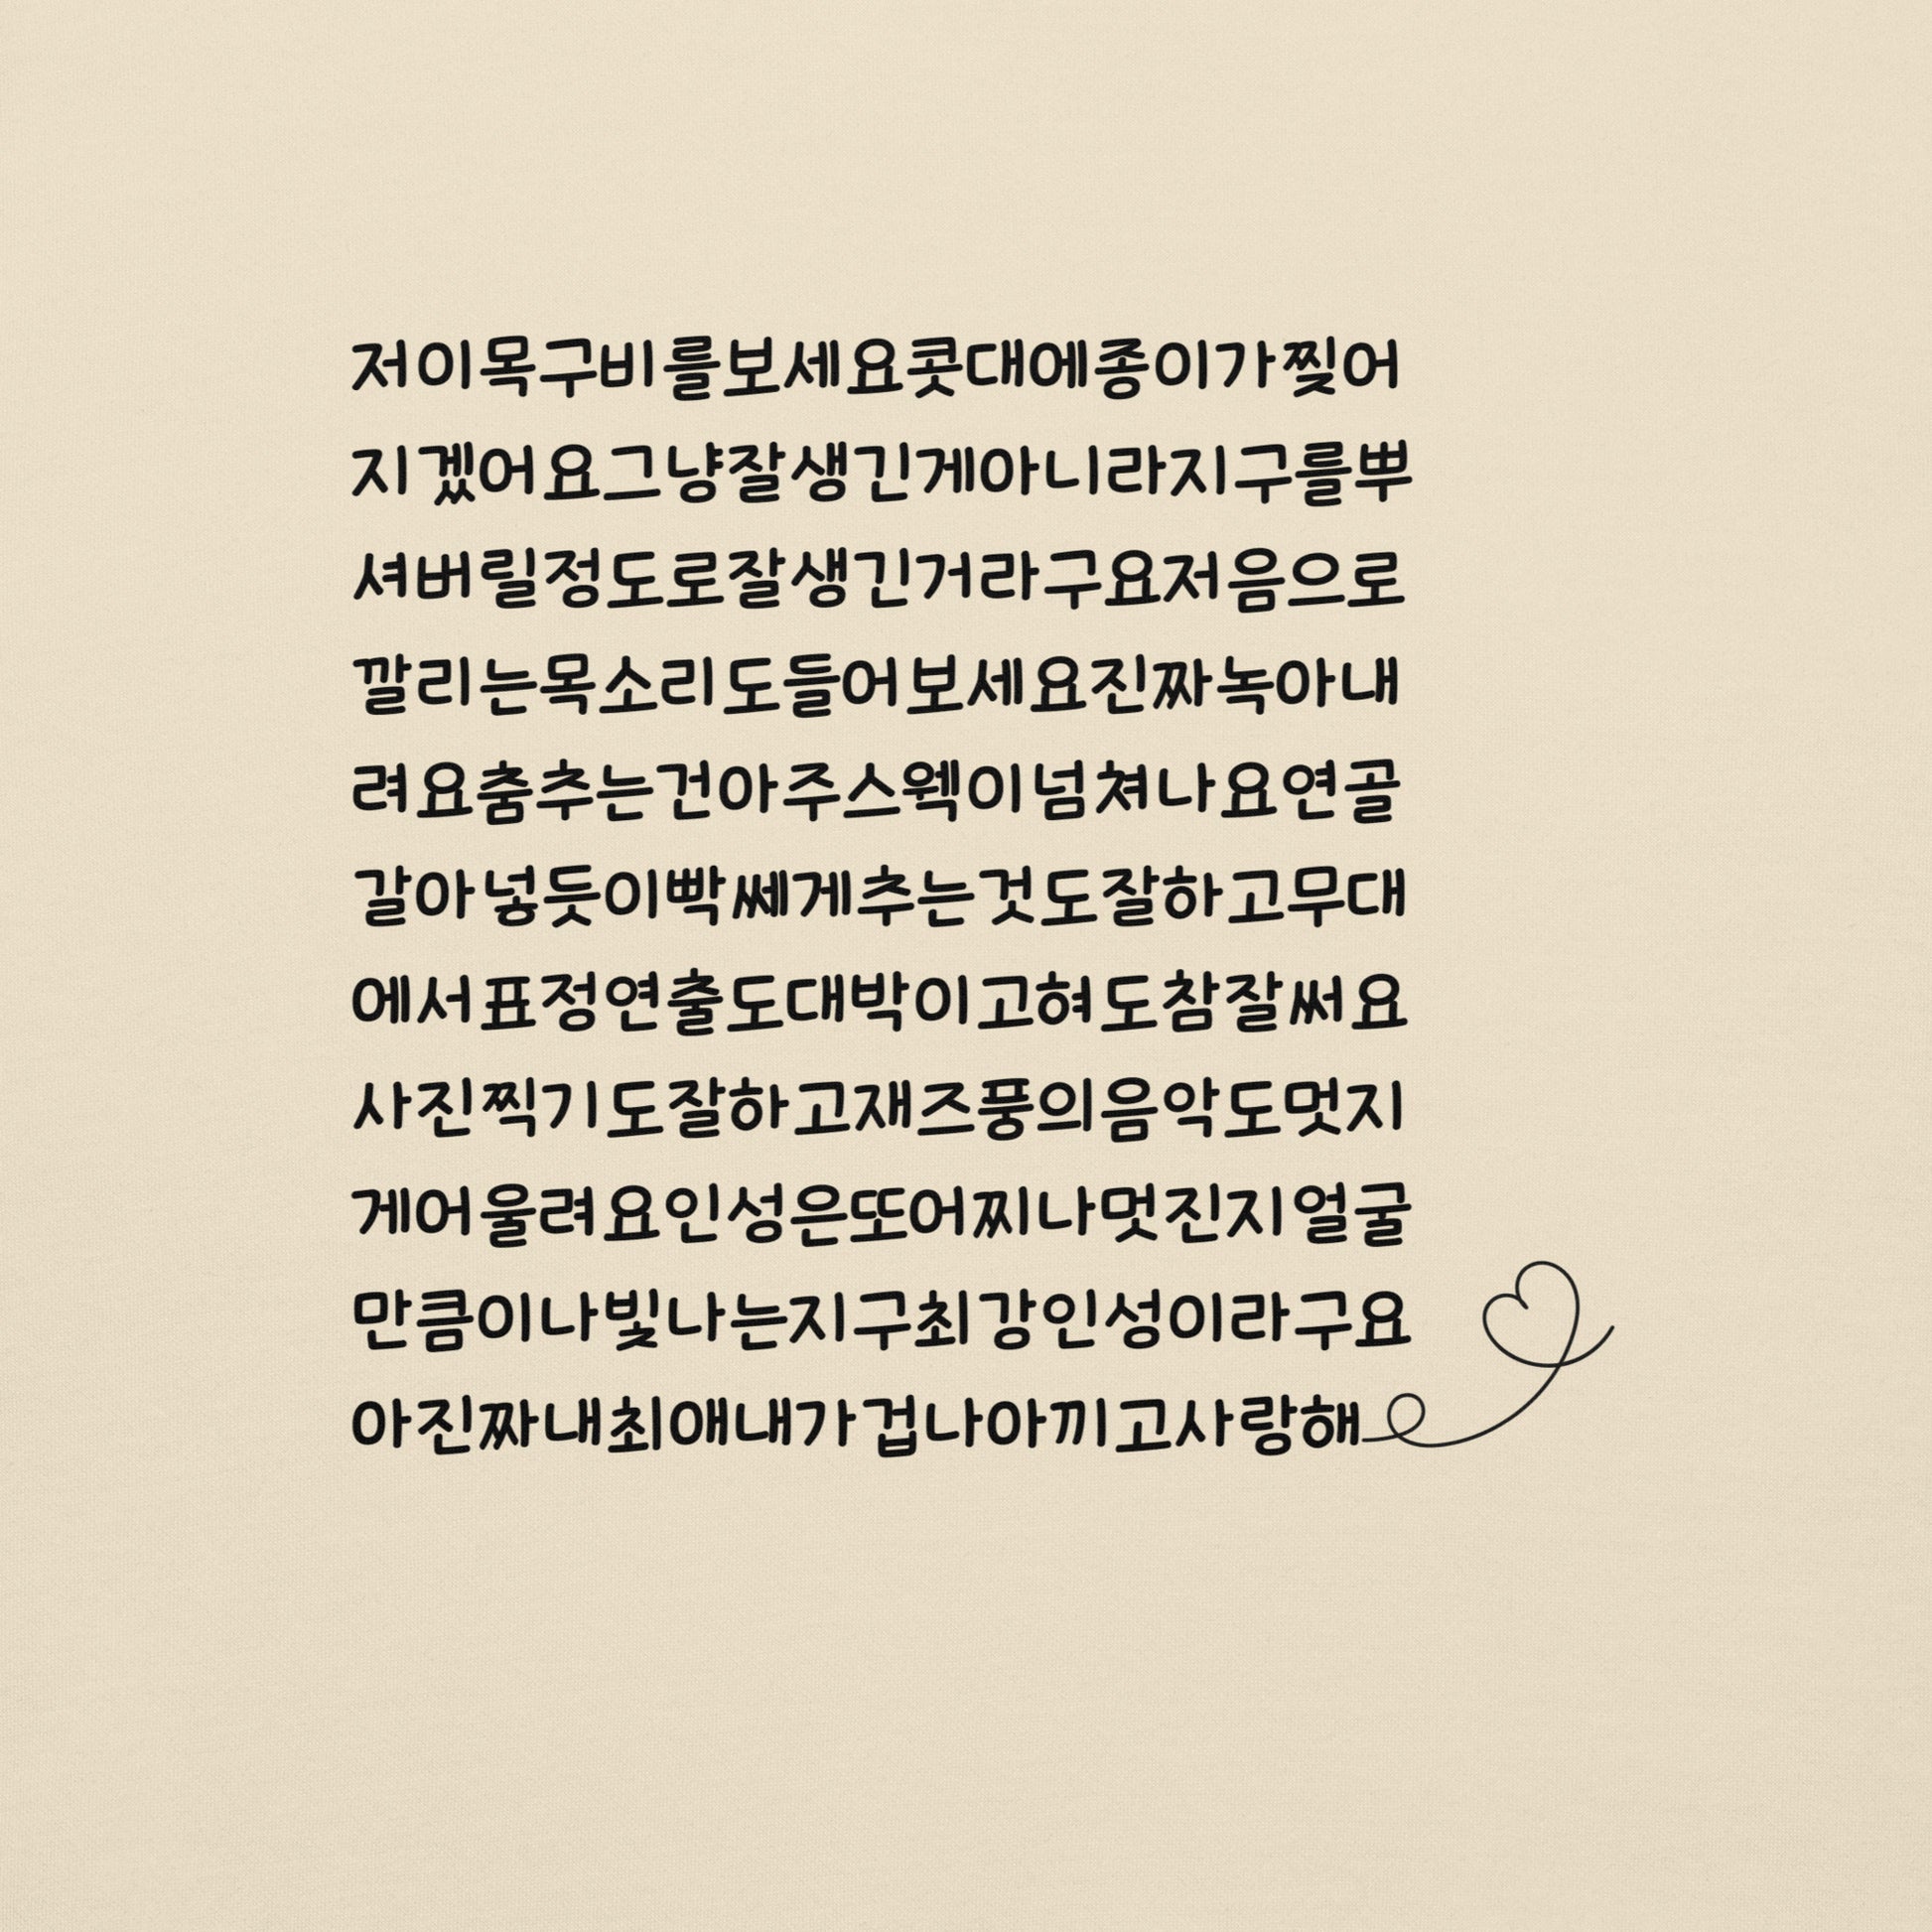 저이목구비를보세요콧대에종이가찢어
지겠어요그냥잘생긴게아니라지구를뿌
셔버릴정도로잘생긴거라구요저음으로
깔리는목소리도들어보세요진짜녹아내
려요춤추는건아주스웩이넘쳐나요연골
갈아넣듯이빡쎄게추는것도잘하고무대
에서표정연출도대박이고혀도참잘써요
사진찍기도잘하고재즈풍의음악도멋지
게어울려요인성은또어찌나멋진지얼굴
만큼이나빛나는지구최강인성이라구요
아진짜내최애내가겁나아끼고사랑해